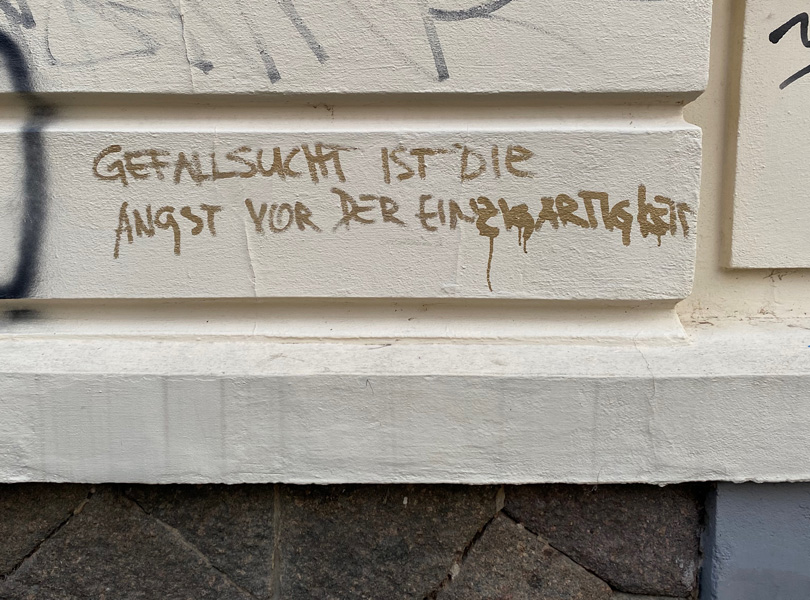 GEFALLSUCHT IST DIE
ANGST VOR DER EINZIGARTIGKEIT